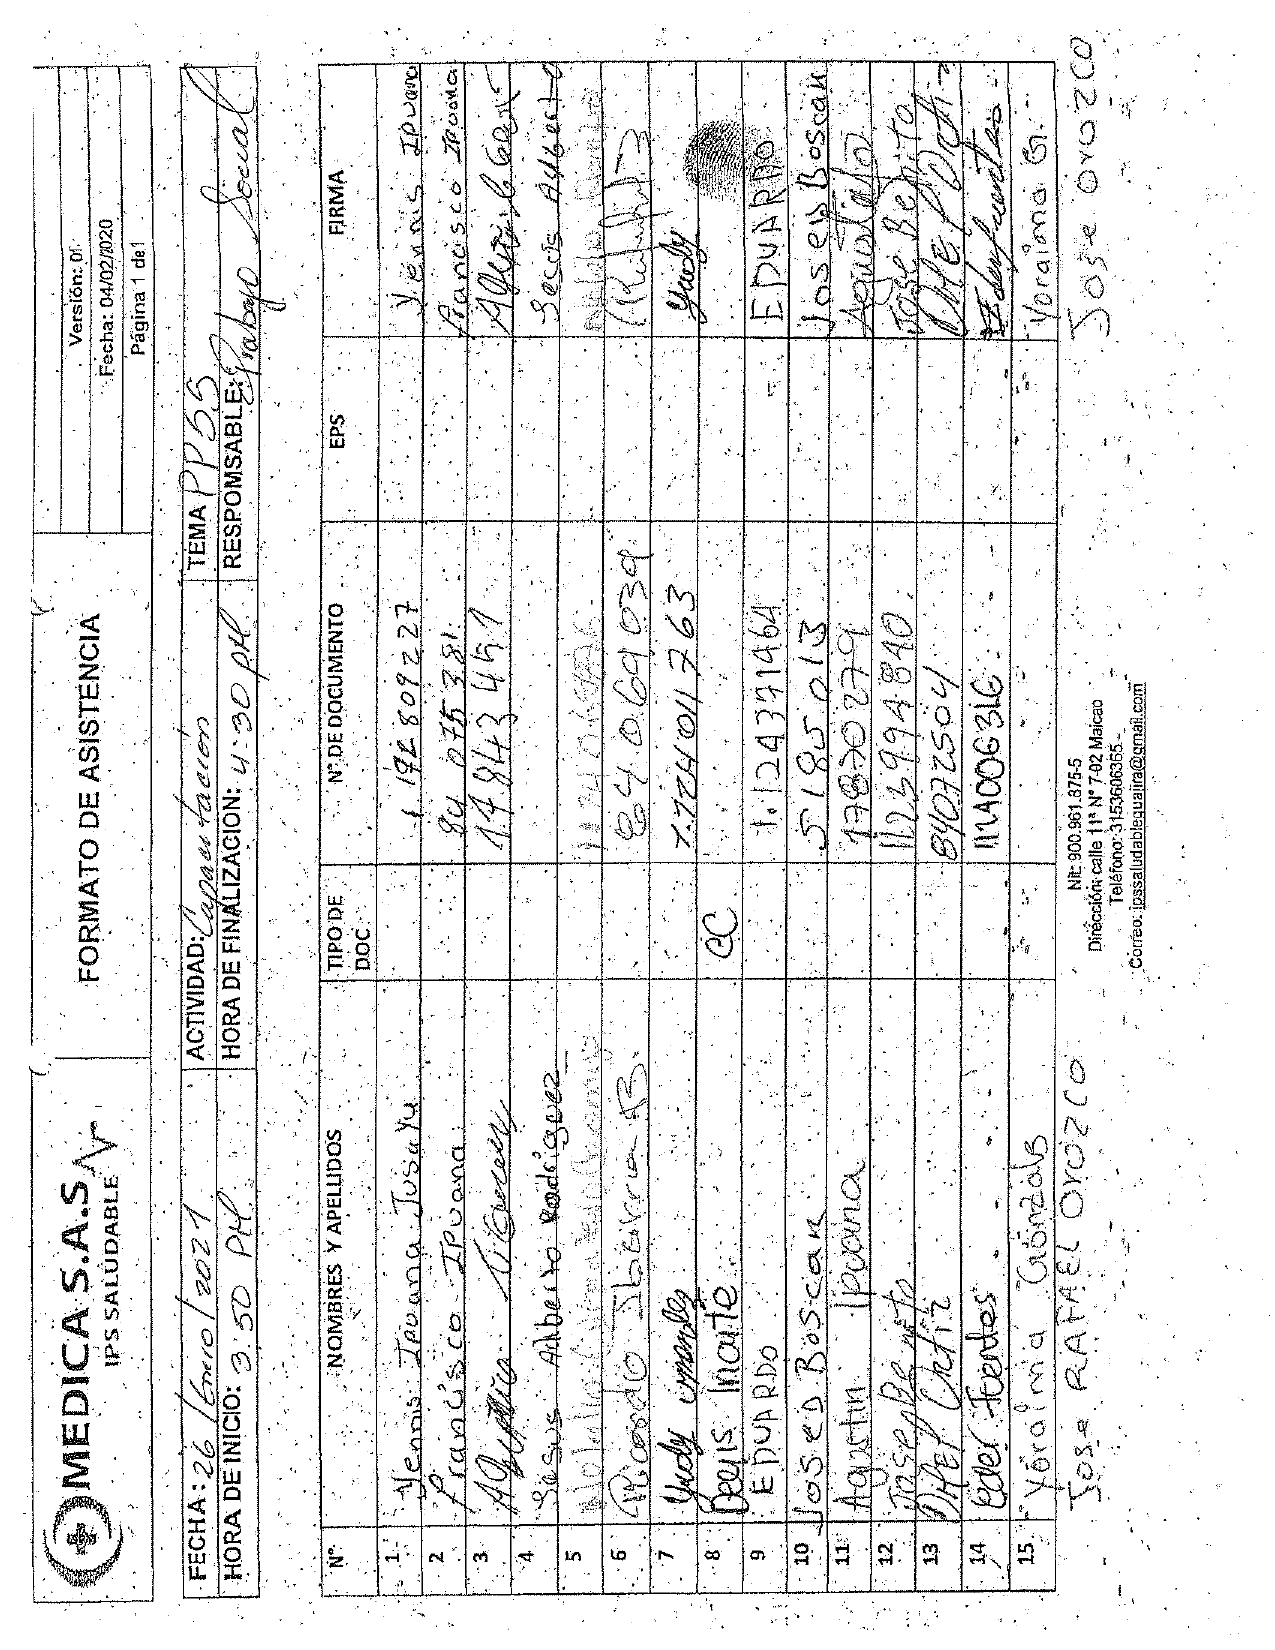 MEDICA S.A.S
IPS SALUDABLE
FORMATO DE ASISTENCIA
Versión: 01
Fecha: 04/02/2020
Página 1 de 1
FECHA: 26/Enero/2021 ACTIVIDAD: Capacitación TEMA PPSS
HORA DE INICIO: 3:50 PM HORA DE FINALIZACION: 4:30 PM RESPOMSABLE: Trabajo Social
N° NOMBRES Y APELLIDOS TIPO DE DOC N° DE DOCUMENTO EPS FIRMA
1 Yennis Ipuana Jusayu 1 192 809227 Yennis Ipuana
2 Francisco Ipuana 84 075 381 Francisco Ipuana
3
4 Jesus Albeiro Rodriguez Jesus Alveirto
5
6 Ricardo 84069039
7 Yudy 1.124011763 Yudy
8 Deeis Iriarte CC
9 EDUARDO 1.124371464 EDUARDO
10 Joseph Boscan 5185013 Boscan
11 Agustin Ipuana 17870279 Agustin
12 Jose Benito 1123994840 Jose Benito
13 84072504
14 Eder Fuentes
15 Yoraima González Yoraima G.
Jose RAFAEL OrOZCO Jose OrOZCO
Nit: 900.961.875-5
Dirección: calle 11ª N° 7-02 Maicao
Teléfono: 3153606355
Correo: ipssaludableguajira@gmail.com